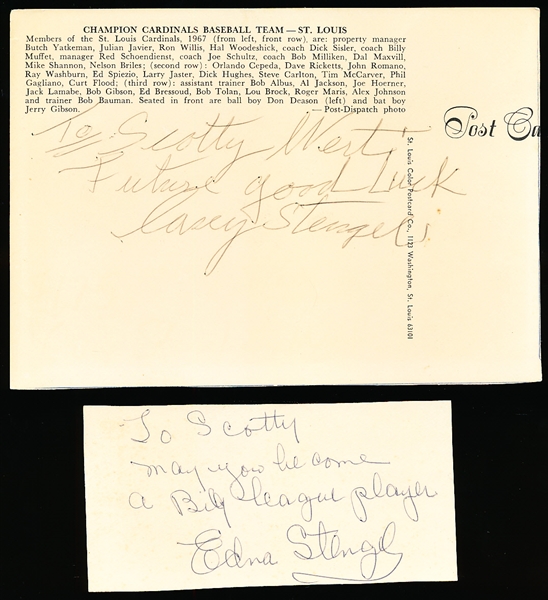 CHAMPION CARDINALS BASEBALL TEAM — ST. LOUIS
Members of the St. Louis Cardinals, 1967 (from left, front row), are: property manager
Butch Yatkeman, Julian Javier, Ron Willis, Hal Woodeshick, coach Dick Sisler, coach Billy
Muffet, manager Red Schoendienst, coach Joe Schultz, coach Bob Milliken, Dal Maxvill,
Mike Shannon, Nelson Briles; (second row): Orlando Cepeda, Dave Ricketts, John Romano,
Ray Washburn, Ed Spiezio, Larry Jaster, Dick Hughes, Steve Carlton, Tim McCarver, Phil
Gagliano, Curt Flood; (third row): assistant trainer Bob Albus, Al Jackson, Joe Hoerner,
Jack Lamabe, Bob Gibson, Ed Bressoud, Bob Tolan, Lou Brock, Roger Maris, Alex Johnson
and trainer Bob Bauman. Seated in front are ball boy Don Deason (left) and bat boy
Jerry Gibson. — Post-Dispatch photo
Post Ca
St. Louis Color Postcard Co., 1123 Washington, St. Louis 63101
To Scotty
Future good Luck
Casey Stengel
To Scotty
may you become
a Big league player
Edna Stengel